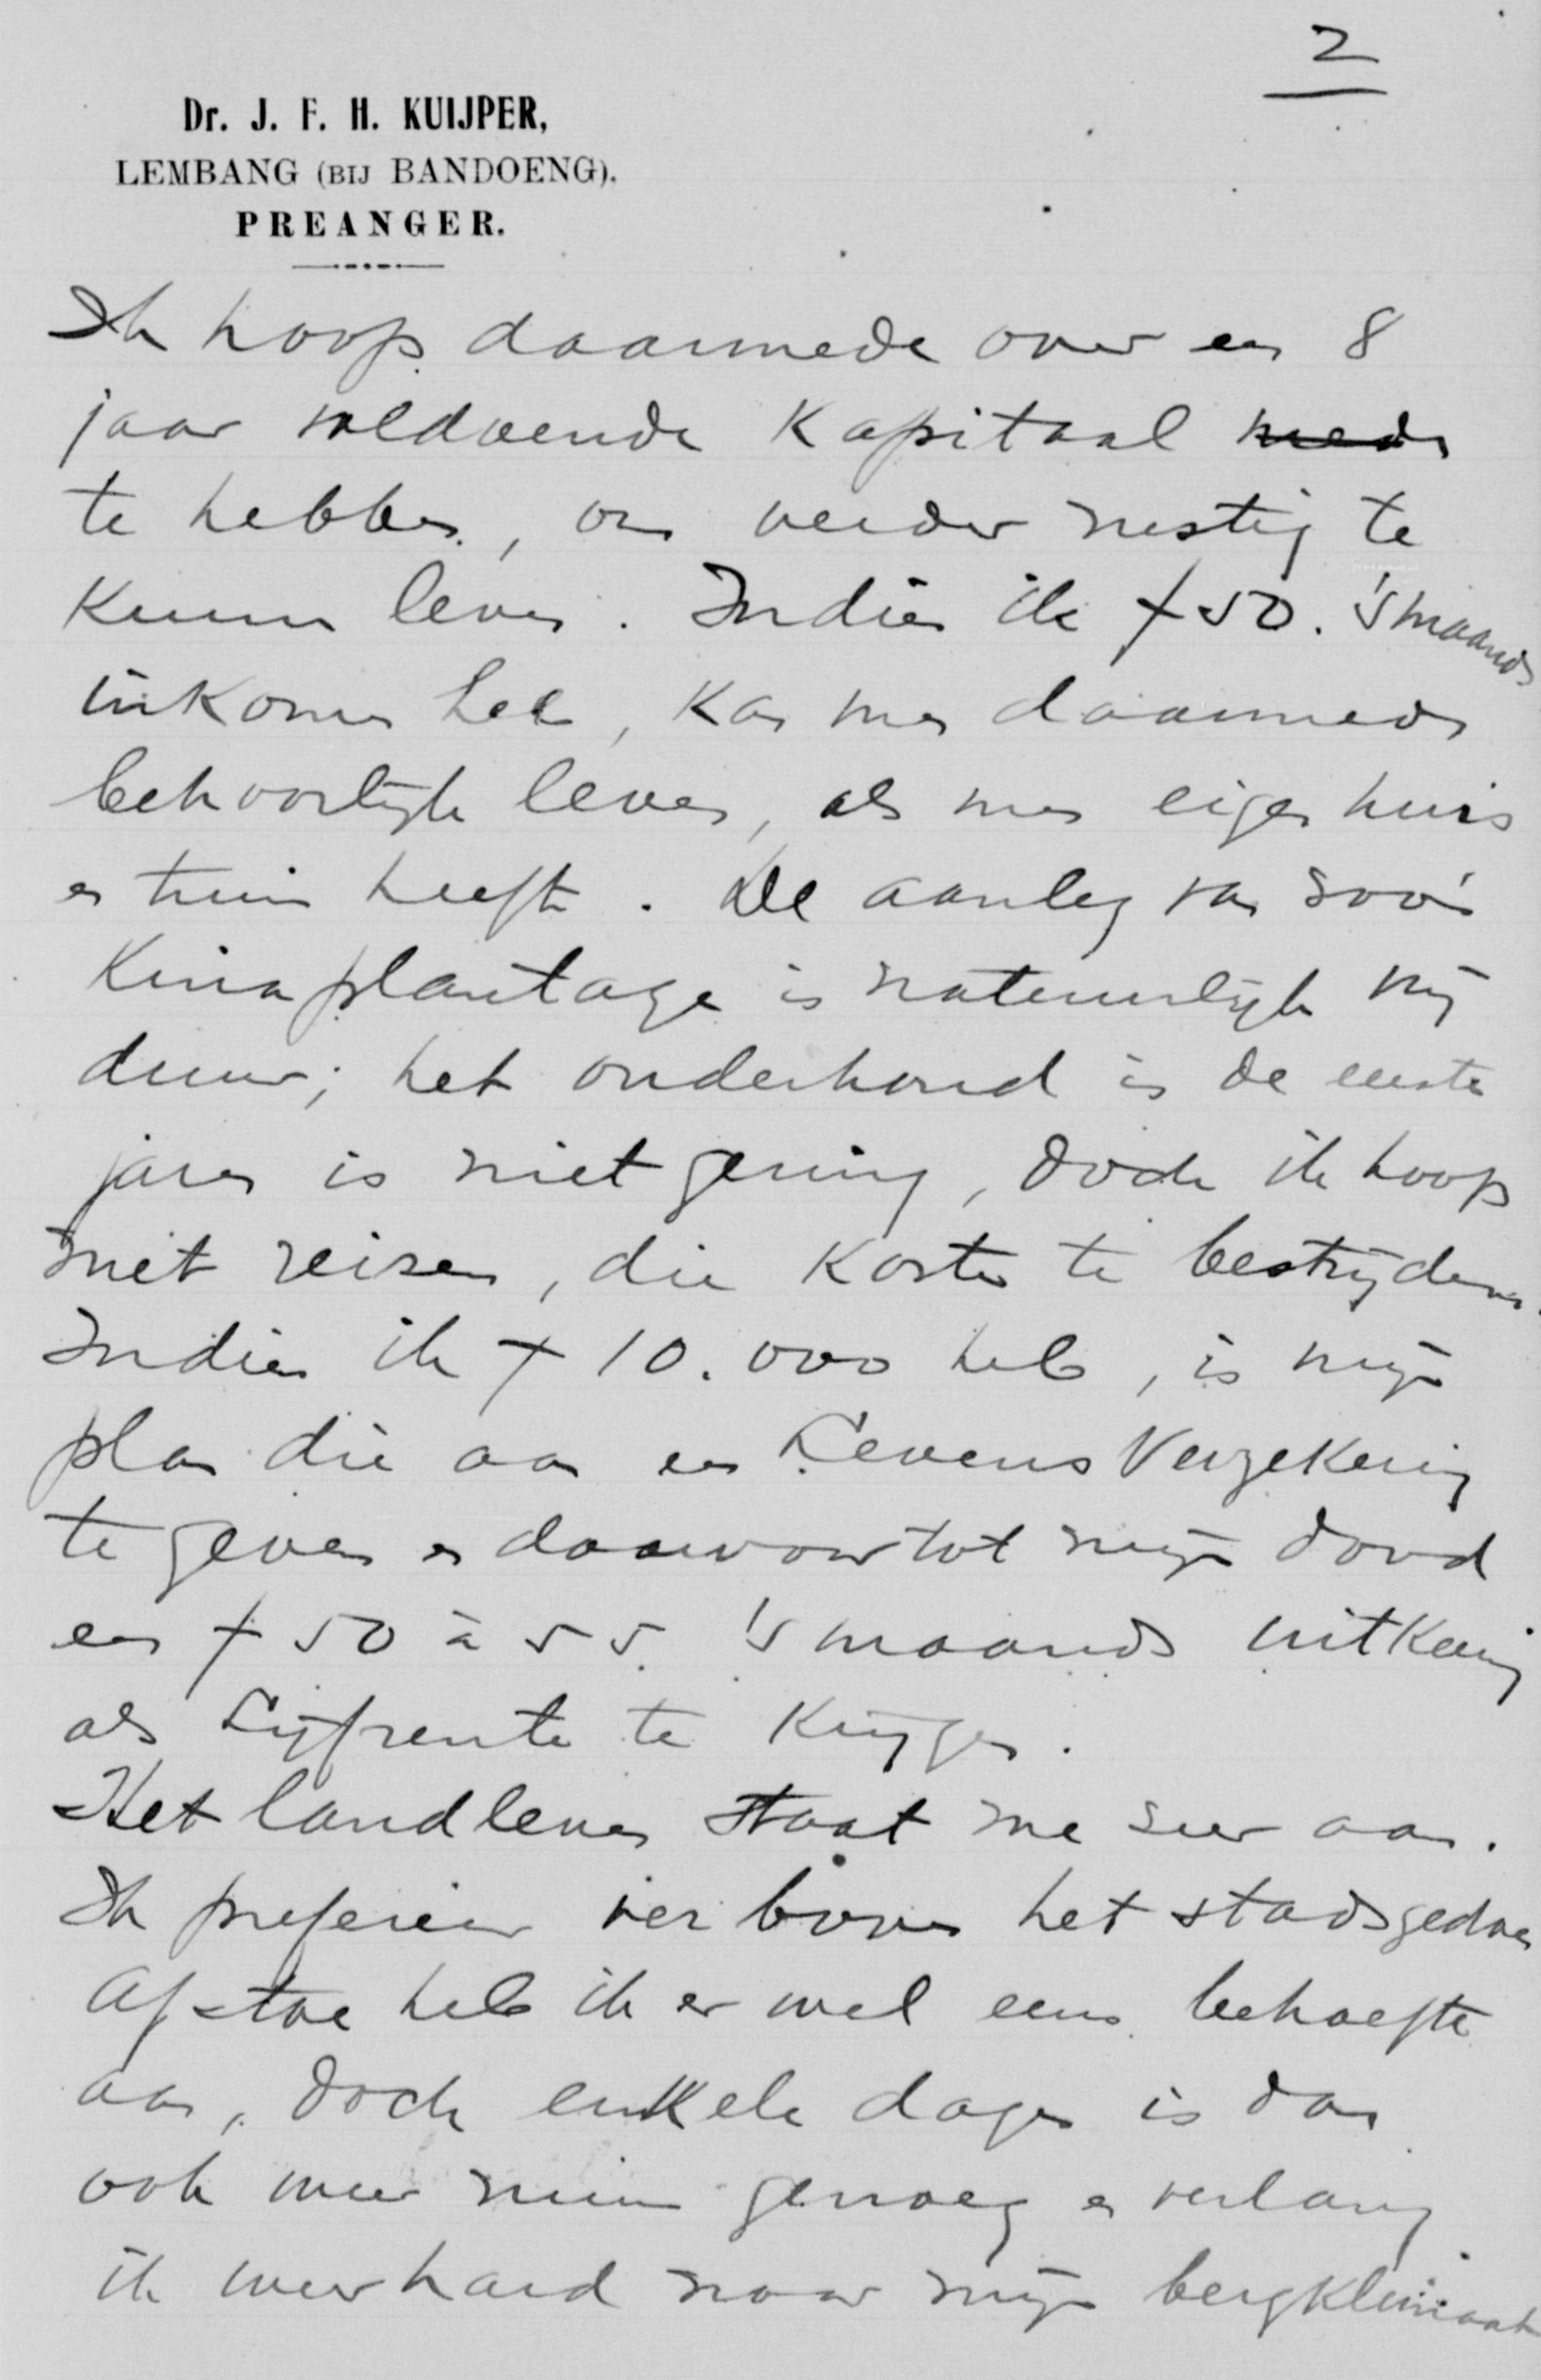 2
Dr. J. F. H. KUIJPER,
LEMBANG (BIJ BANDOENG).
PREANGER.
Ik hoop daarmede over een 8
jaar voldoende Kapitaal mede
te hebben, om verder rustig te
Kunnen leven. Indien ik f 50. 's maands
inkomen heb, kan men daarmede
behoorlijk leven, als men eigen huis
en tuin heeft. De aanleg van zoo'n
Kina plantage is natuurlijk vrij
duur; het onderhoud is de eerste
jaren is niet gering, doch ik hoop
met reizen, die kosten te bestrijden.
Indien ik f 10.000 heb, is mijn
plan die aan een Levens Verzekering
te geven en daarvoor tot mijn dood
een f 50 à 55. 's maands uitkering
als Lijfrente te Krijgen.
Het landleven staat me zeer aan.
Ik prefereer ver boven het stadsgedoe
Af en toe heb ik er wel eens behoefte
aan, doch enkele dagen is dan
ook weer ruim genoeg en verlang
ik weer hard naar mijn bergklimaat